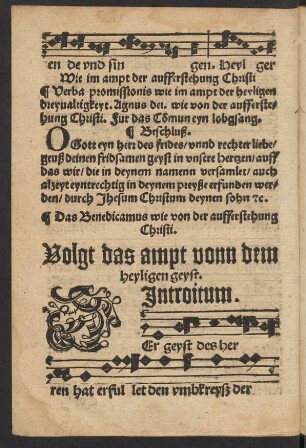 en de vnd sin gen. Heyl ger
Wie im ampt der aufferstehung Christi
¶ Verba promissionis wie im ampt der heyligen
dreyualtigkeyt. Agnus dei. wie von der aufferste-
hung Christi. Fur das Cõmun eyn lobgsang.
¶ Beschluß.
O Gott eyn hirt des frides/ vnnd rechter liebe/
geuß deinen fridsamen geyst in vnsere hertzen/ auff
das wir/ die in deynem namenn versamlet/ auch
alzeyt eyntrechtig in deynem preyße erfunden wer-
den/ durch Jhesum Christum deynen sohn ⁊c.
¶ Das Benedicamus wie von der aufferstehung
Christi.
Volgt das ampt vonn dem
heyligen geyst.
Introitum.
Der geyst des her
ren hat erful let den vmbkreysz der